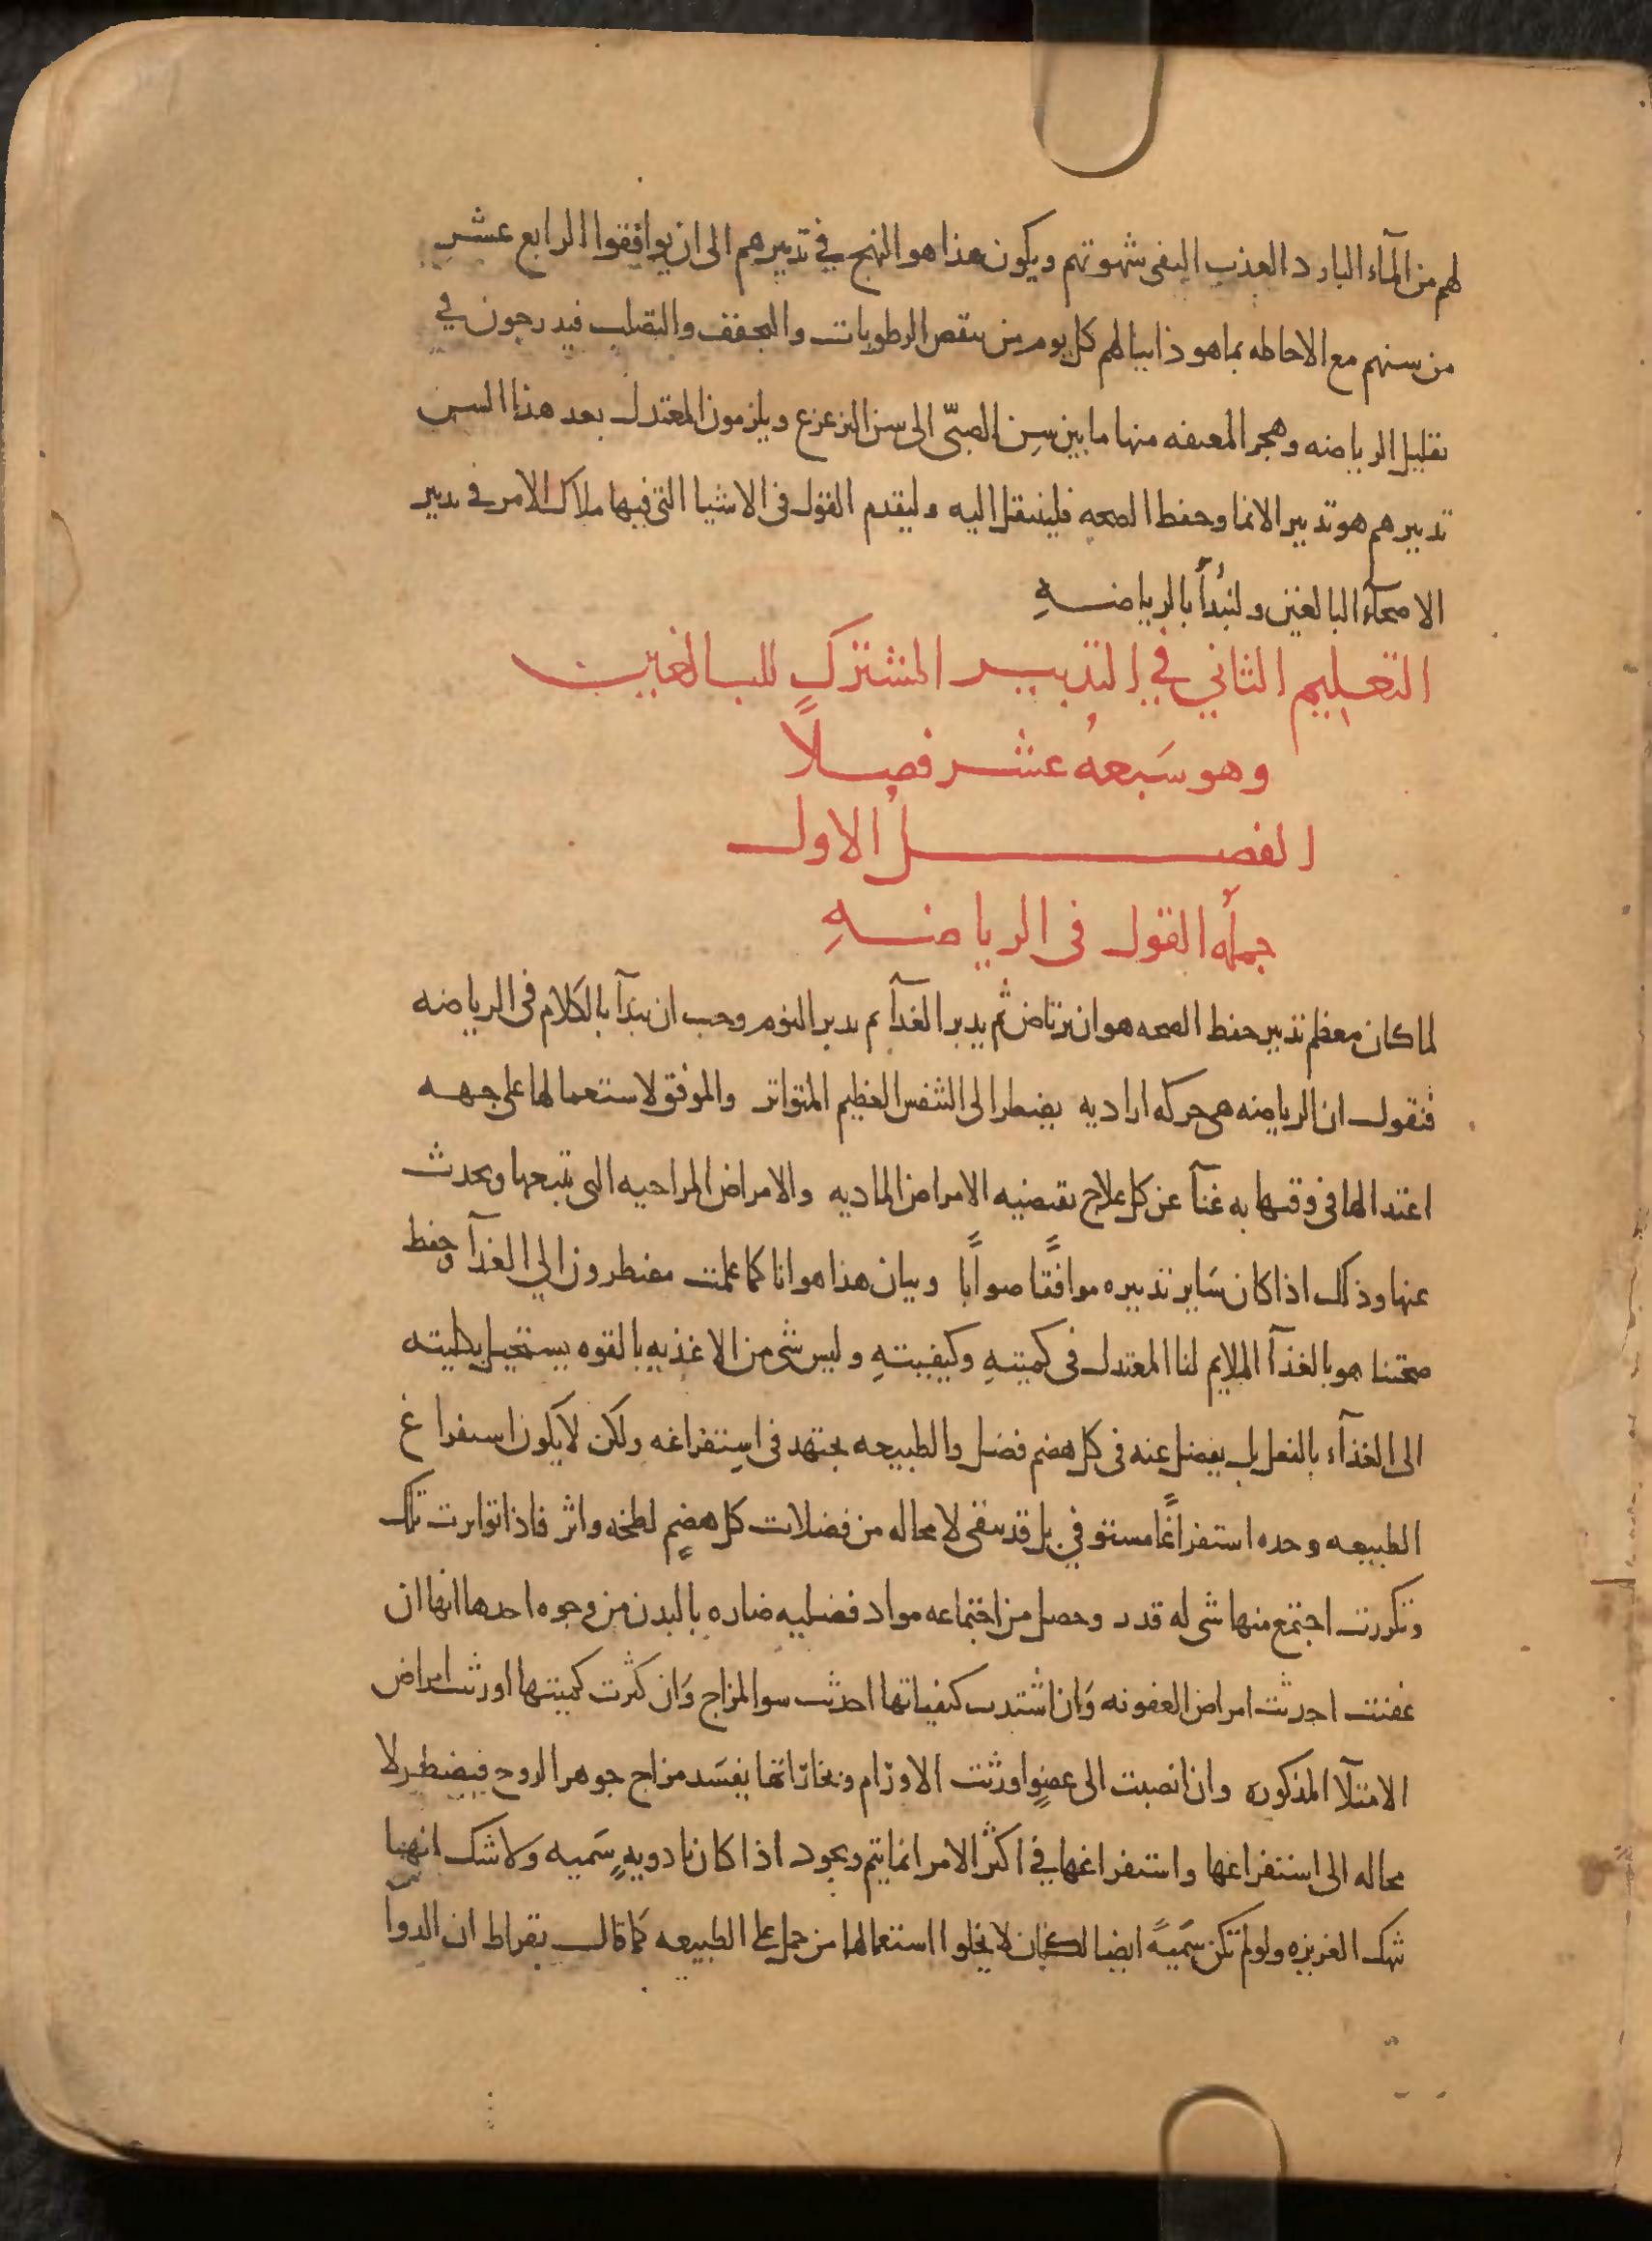 لهم من المآء البارد العذب النقى شهوتهم ويكون هذا هو النهج في تدبيرهم الى ان يوافقوا الرابع عشر
من سنهم مع الاحاطه بما هو ذاتيا لهم كل يوم من تنقص الرطوبات والتجفف والتصلب فيدرجون في
تقليل الرياضه وهجر المعنفه منها ما بين سن الصبّى الى سن الترعرع ويلزمون المعتدل بعد هذا السن
تدبيرهم هو تدبير الانما وحفظ الصحه فلينتقل اليه وليقدم القول فى الاشيا التى فيها ملاك الامر في تدبير
الاصحآء البالغين ولنبدأ بالرياضه
التعليم الثاني في التدبير المشترك للبالغين
وهو سَبعهُ عشر فصلاً
الفصلُ الاول
جملهُ القول فى الرياضهِ
لما كان معظم تدبير حفظ الصحه هو ان يرتاض ثم يدبر الغدآ ثم يدبر النوم وجب ان نبدآ بالكلام فى الرياضه
فنقول ان الرياضه هى حركه اراديه يضطر الى التنفس العظيم المتواتر والموفق لاستعمالها على جهه
اعتدالها فى وقتها به غنآ عن كل علاج تقتضيه الامراض الماديه والامراض المزاجيه التى تتبعها وتحدث
عنها وذلك اذا كان سَاير تدبيره موافقًا صوابًا وبيان هذا هو انا كما علمت مضطرون الي الغذآ وحفظ
صحتنا هو بالغذآ الملايم لنا المعتدل فى كميتهِ وكيفيتهِ وليس شى من الاغذيه بالقوه يستحيل بكليته
الى الغذآء بالفعل بل يفضل عنه فى كل هضم فضل والطبيعه تجتهد فى استفراغه ولكن لا يكون استفراغ
الطبيعه وحده استفراغًا مستوفي بل قد يبقى لا محاله من فضلات كل هضمٍ لطخه واثر فاذا تواترت تلك
وتكررت اجتمع منها شى له قدر وحصل من اجتماعه مواد فضليه ضاره بالبدن من وجوه احدها انها ان
عفنت احدثت امراض العفونه وَان اشتدت كيفياتها احدثت سو المزاج وَان كثرت كميتها اورثت امراض
الامتلآ المذكوره وان انصبت الى عضوٍ اورثت الاورَام وبخاراتها يفسَد مزاج جوهر الروح فيضطر لا
محاله الى استفراغها واستفراغها في اكثر الامر انما يتم ويجود اذا كان بادويهٍ سَميه وَلا شك انها
تنهك الغريزه ولو لم تكن سَميهً ايضا لكان لا يخلوا استعمالها من حمل على الطبيعه كما قال بقراط ان الدوآ